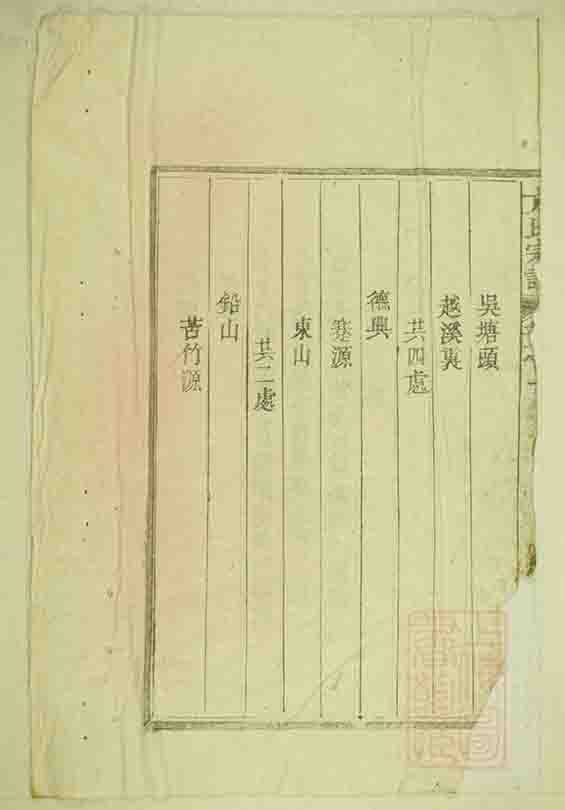 吳塘頭
越溪裏
共四處
德興
塞源
東山
共二處
鉛山
苦竹源